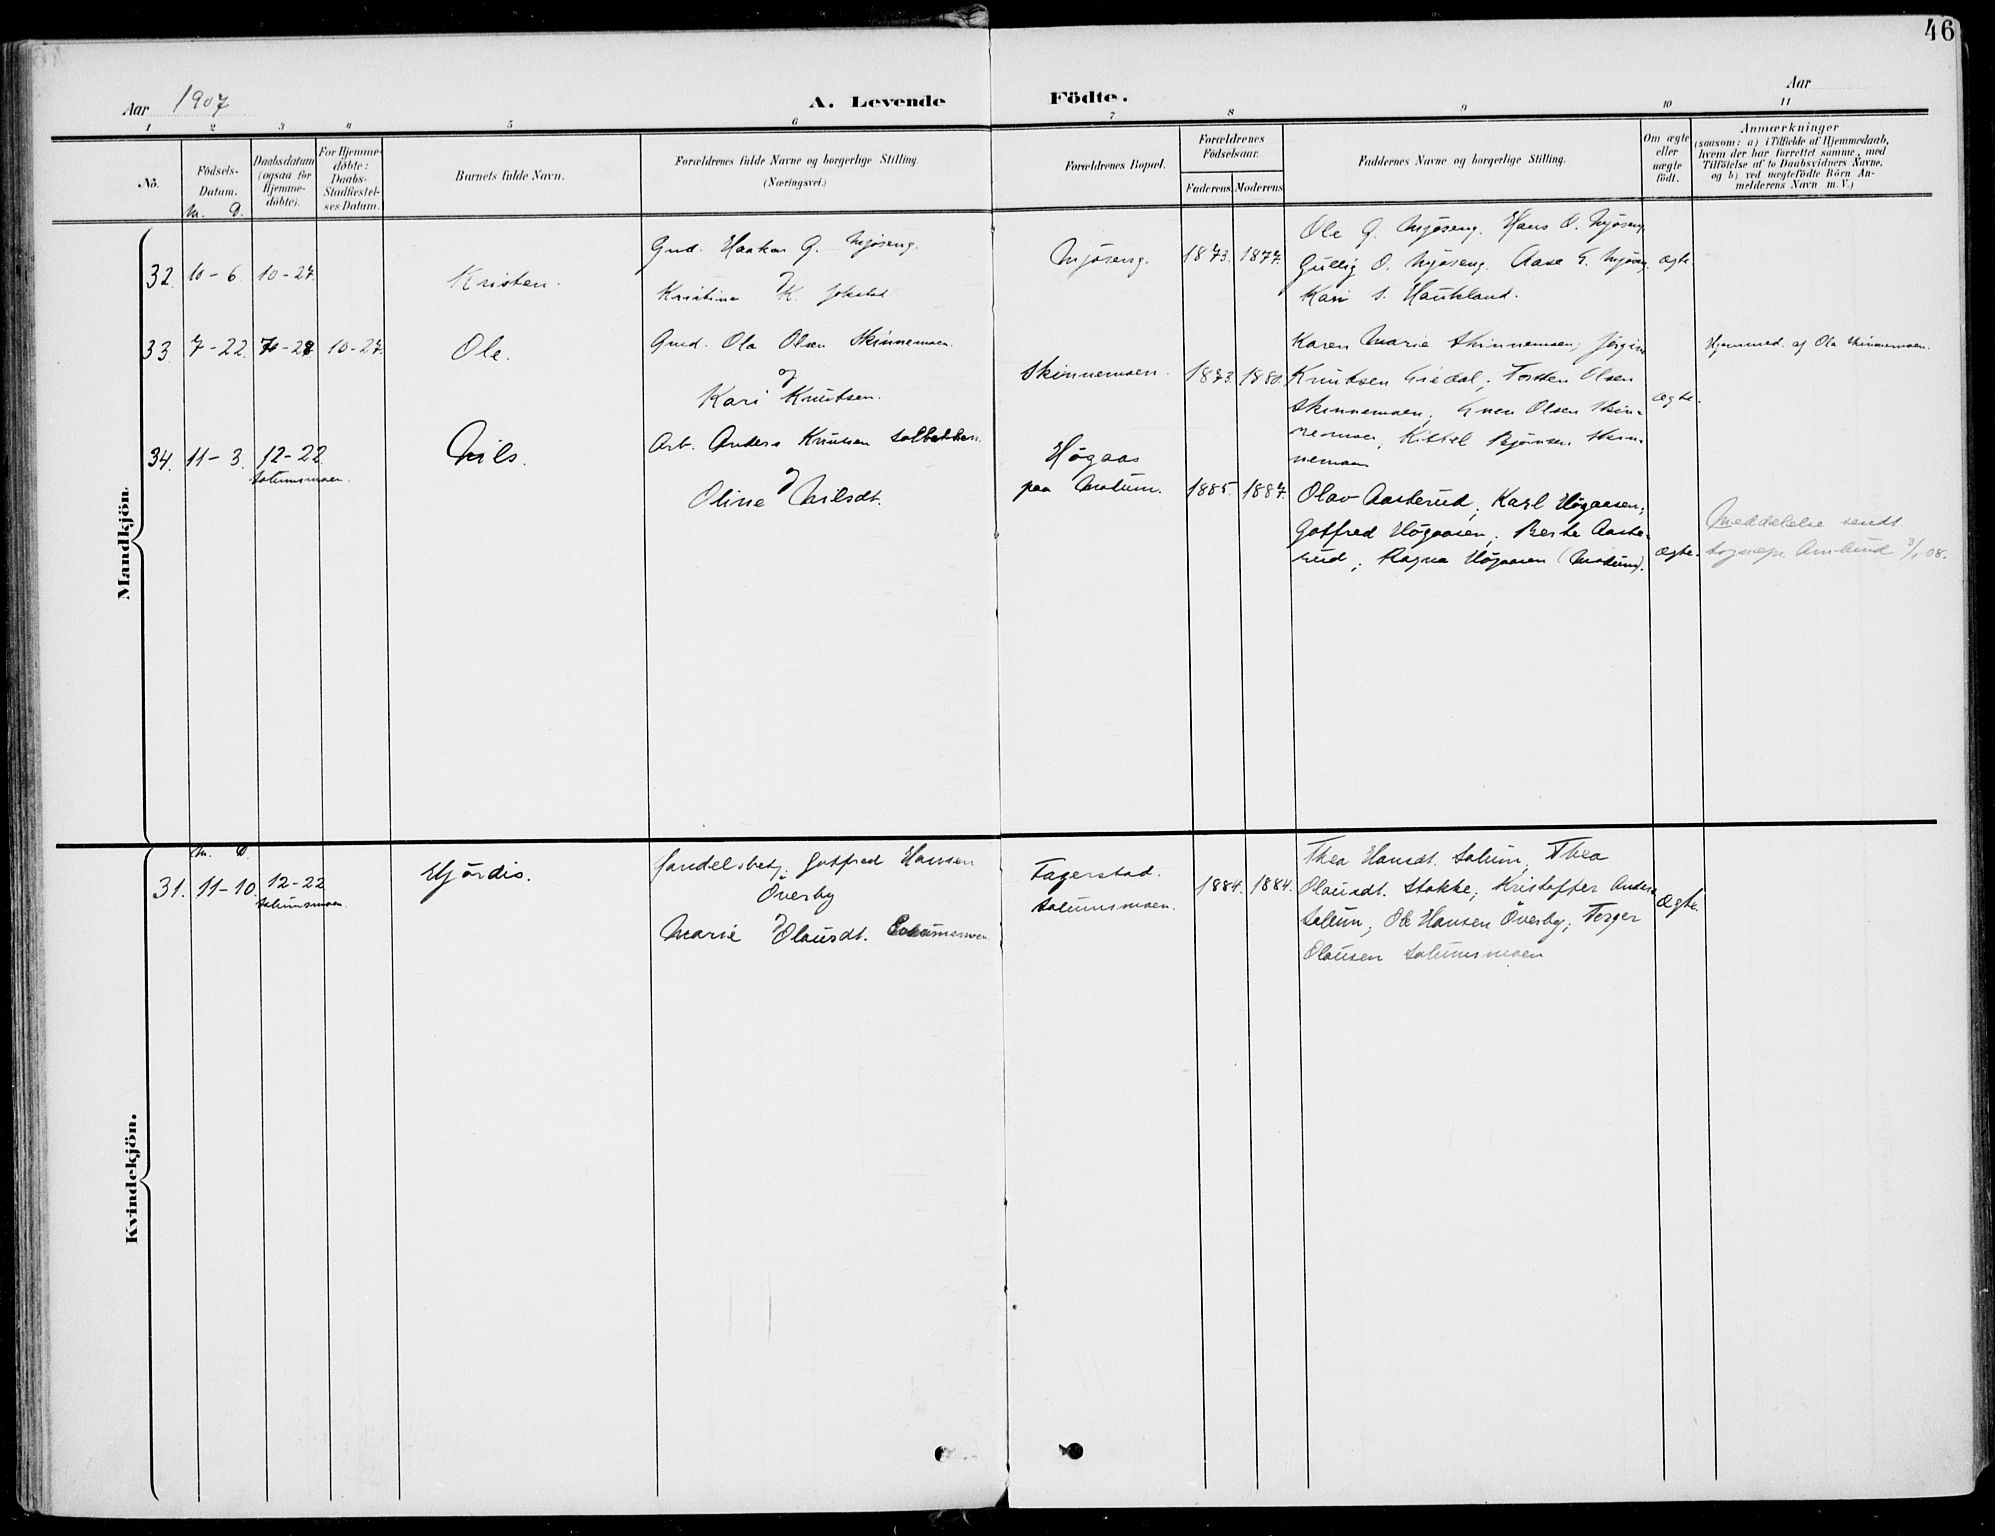 46
Aar 1907
A. Levende Födte.
Aar
1 2 3 4 5 6 7 8 9 10 11
No.
Födsels-
Datum.
M. D.
Daabsdatum
(ogsaa for
Hjemme-
döbte).
For Hjemme-
döbte:
Daabs-
Stadfæstel-
ses Datum.
Barnets fulde Navn.
Forældrenes fulde Navne og borgerlige Stilling.
(Næringsvei.)
Forældrenes Bopæl.
Forældrenes
Födselsaar.
Faderens Moderens
Faddernes Navne og borgerlige Stilling.
Om ægte
eller
uægte
födt.
Anmærkninger
(saasom: a) i Tilfælde af Hjemmedaab,
hvem der har forrettet samme, med
Tilföielse af to Daabsvidners Navne,
og b) ved uægtefödte Börn An-
melderens Navn m. V.)
Mandkjön.
32. 10-6. 10-27. Kristen.
Gmd. Haakon G. Mjøseng.
og
Kristine K. Jokstad
Mjøseng. 1873. 1877.
Ole G. Mjøseng. Hans O. Mjøseng.
Gullig O. Mjøseng. Aase G. Mjøseng.
Kari S. Haukland.
ægte.
33. 7-22. 7-28 10-27. Ole.
Gmd. Ola Olsen Skinnemoen.
og
Kari Knutsen.
Skinnemoen. 1873. 1880.
Karen Marie Skinnemoen; Jørgine
Knutsen Gredal; Torsten Olsen
Skinnemoen; Olsen Skin-
nemoen, Kittel Bjørnsen Skin-
nemoen
ægte.
Hjemmed. af Ola Skinnemoen.
34. 11-3. 12-22.
Solumsmoen.
Nils.
Arb. Anders Knutsen Solbakken.
og
Oline Nilsdt.
Høgaas
paa Modum. 1885. 1887.
Olav Aasterud; Karl Høgaasen;
Gotfred Høgaasen; Berte Aaste-
rud; Ragna Høgaasen (Modum).
ægte.
Meddelelse sendt
sognepr. 3/1 08.
Kvindekjön.
M. D.
31. 11-10. 12-22
Solumsmoen.
Hjørdis.
Handelsbetj. Gotfred Hansen
Överby
og
Marie Olausdt. Solumsmoen
Fagerstad.
Solumsmoen. 1884. 1884.
Thea Hansdt. Solum, Thea
Olausdt. Stokke; Kristoffer Anders.
Solum; Ole Hansen Överby; Torger
Olausen Solumsmoen
Ægte.